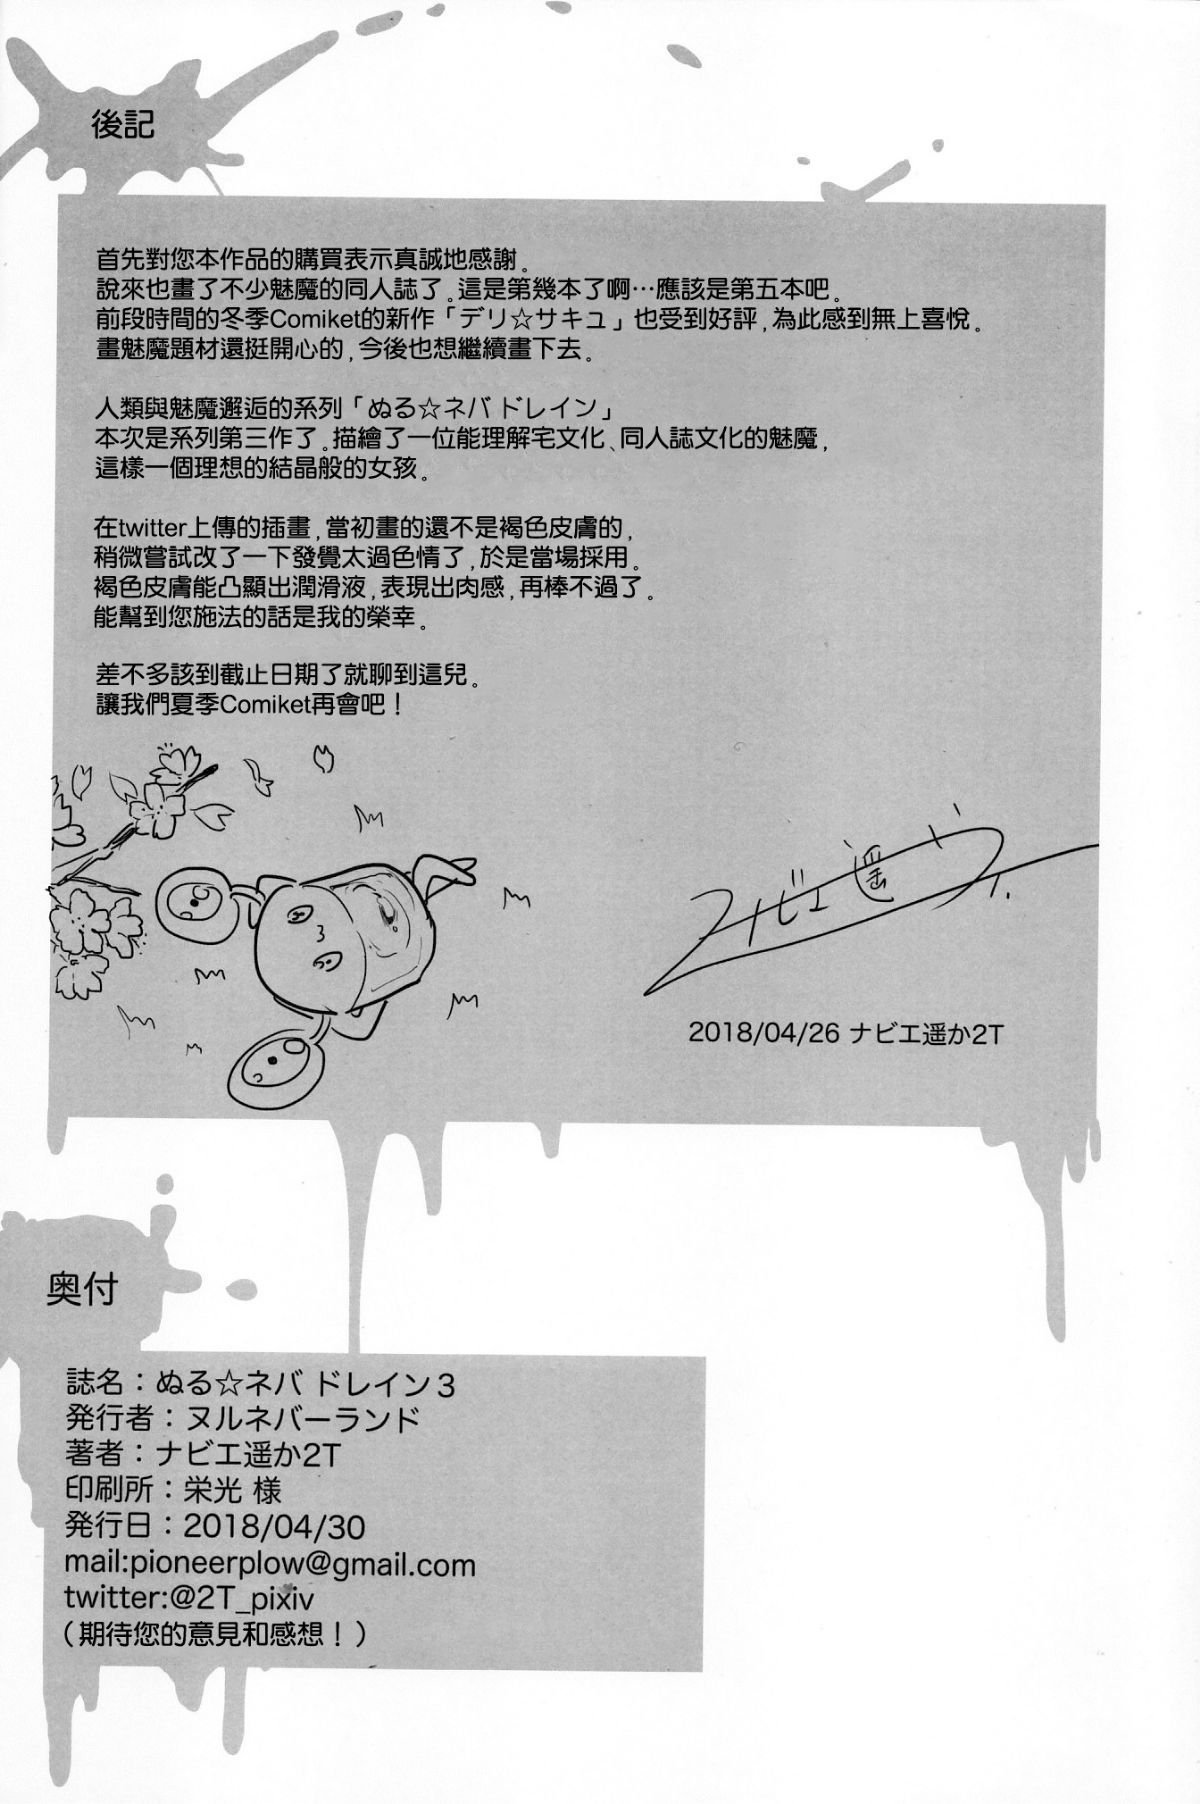 後記
首先對您本作品的購買表示真誠地感謝。
說來也畫了不少魅魔的同人誌了。這是第幾本了啊…應該是第五本吧。
前段時間的冬季Comiket的新作「デリ☆サキュ」也受到好評,為此感到無上喜悅。
畫魅魔題材還挺開心的,今後也想繼續畫下去。
人類與魅魔邂逅的系列「ぬる☆ネバ ドレイン」
本次是系列第三作了。描繪了一位能理解宅文化、同人誌文化的魅魔,
這樣一個理想的結晶般的女孩。
在twitter上傳的插畫,當初畫的還不是褐色皮膚的,
稍微嘗試改了一下發覺太過色情了,於是當場採用。
褐色皮膚能凸顯出潤滑液,表現出肉感,再棒不過了。
能幫到您施法的話是我的榮幸。
差不多該到截止日期了就聊到這兒。
讓我們夏季Comiket再會吧！
ナビエ遥か2T.
2018/04/26 ナビエ遥か2T
奥付
誌名：ぬる☆ネバ ドレイン３
発行者：ヌルネバーランド
著者：ナビエ遥か2T
印刷所：栄光 様
発行日：2018/04/30
mail:pioneerplow@gmail.com
twitter:@2T_pixiv
（期待您的意見和感想！）